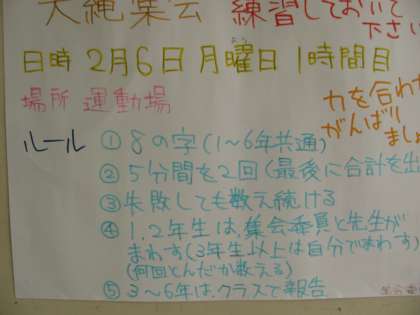 大縄集会 練習しておいて
下さい
日時 2月6日月曜日1時間目
よう
場所 運動場
力を合わ
がんばり
ましょ
ルール ① 8の字(1~6年共通)
② 5分間を2回(最後に合計を出
③ 失敗しても数え続ける
④ 1,2年生は、集会委員と先生が
まわす(3年生以上は自分でまわす)
(何回とんだか数える)
⑤ 3~6年は、クラスで報告